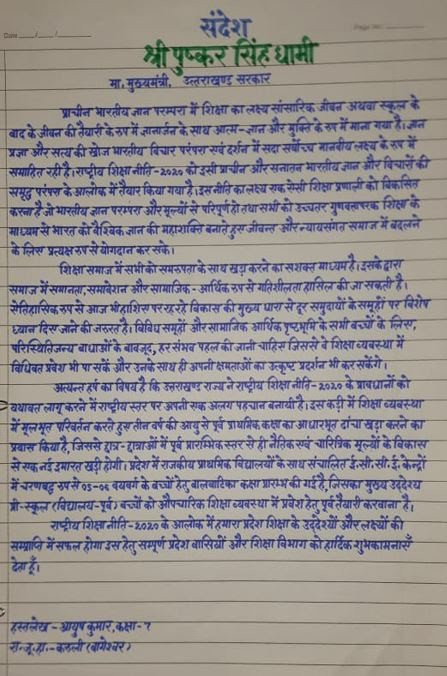 संदेश
श्री पुष्कर सिंह धामी
मा. मुख्यमंत्री, उत्तराखण्ड सरकार
प्राचीन भारतीय ज्ञान परम्परा में शिक्षा का लक्ष्य सांसारिक जीवन अथवा स्कूल के
बाद के जीवन की तैयारी के रूप में ज्ञानार्जन के साथ आत्म-ज्ञान और मुक्ति के रूप में माना गया है। ज्ञान
प्रज्ञा और सत्य की खोज भारतीय विचार परंपरा एवं दर्शन में सदा सर्वोच्च मानवीय लक्ष्य के रूप में
समाहित रही है। राष्ट्रीय शिक्षा नीति-2020 को इसी प्राचीन और सनातन भारतीय ज्ञान और विचारों की
समृद्ध परंपरा के आलोक में तैयार किया गया है। इस नीति का लक्ष्य एक ऐसी शिक्षा प्रणाली को विकसित
करना है जो भारतीय ज्ञान परम्परा और मूल्यों से परिपूर्ण हो तथा सभी को उच्चतर गुणवत्तापरक शिक्षा के
माध्यम से भारत को वैश्विक ज्ञान की महाशक्ति बनाते हुए जीवन्त और न्यायसंगत समाज में बदलने
के लिए प्रत्यक्ष रूप से योगदान कर सके।
शिक्षा समाज में सभी को समरूपता के साथ खड़ा करने का सशक्त माध्यम है। इसके द्वारा
समाज में समानता, समावेशन और सामाजिक-आर्थिक रूप से गतिशीलता हासिल की जा सकती है।
ऐतिहासिक रूप से आज भी हाशिए पर रह रहे विकास की मुख्य धारा से दूर समुदायों के समूहों पर विशेष
ध्यान दिए जाने की जरूरत है। विविध समूहों और सामाजिक आर्थिक पृष्ठभूमि के सभी बच्चों के लिए,
परिस्थितिजन्य बाधाओं के बावजूद, हर संभव पहल की जानी चाहिए जिससे वे शिक्षा व्यवस्था में
विधिवत प्रवेश भी पा सकें और उनके साथ ही अपनी क्षमताओं का उत्कृष्ट प्रदर्शन भी कर सकेंगे।
अत्यन्त हर्ष का विषय है कि उत्तराखण्ड राज्य ने राष्ट्रीय शिक्षा नीति-2020 के प्रावधानों को
यथावत लागू करने में राष्ट्रीय स्तर पर अपनी एक अलग पहचान बनायी है। इस कड़ी में शिक्षा व्यवस्था
में मूलभूत परिवर्तन करते हुए तीन वर्ष की आयु से पूर्व प्राथमिक कक्षा का आधारभूत ढांचा खड़ा करने का
प्रयास किया है, जिससे छात्र-छात्राओं में पूर्व प्रारम्भिक स्तर से ही नैतिक एवं चारित्रिक मूल्यों के विकास
से एक नई इमारत खड़ी होगी। प्रदेश में राजकीय प्राथमिक विद्यालयों के साथ संचालित ई.सी.सी.ई. केन्द्रों
में चरणबद्ध रूप से 05-06 वयवर्ग के बच्चों हेतु बालवाटिका कक्षा प्रारम्भ की गई है, जिसका मुख्य उद्देश्य
प्री-स्कूल (विद्यालय-पूर्व) बच्चों को औपचारिक शिक्षा व्यवस्था में प्रवेश हेतु पूर्व तैयारी करवाना है।
राष्ट्रीय शिक्षा नीति-2020 के आलोक में हमारा प्रदेश शिक्षा के उद्देश्यों और लक्ष्यों की
सम्प्राप्ति में सफल होगा इस हेतु सम्पूर्ण प्रदेश वासियों और शिक्षा विभाग को हार्दिक शुभकामनाएँ
देता हूँ।
हस्तलेख - आयुष कुमार, कक्षा-7
रा.जू.हा.- करुली (बागेश्वर)